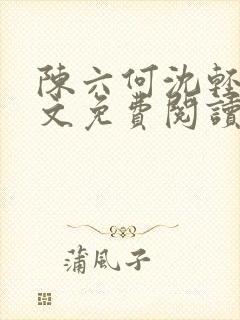 陳六何沈輕
文免費閱讀
蒲風子